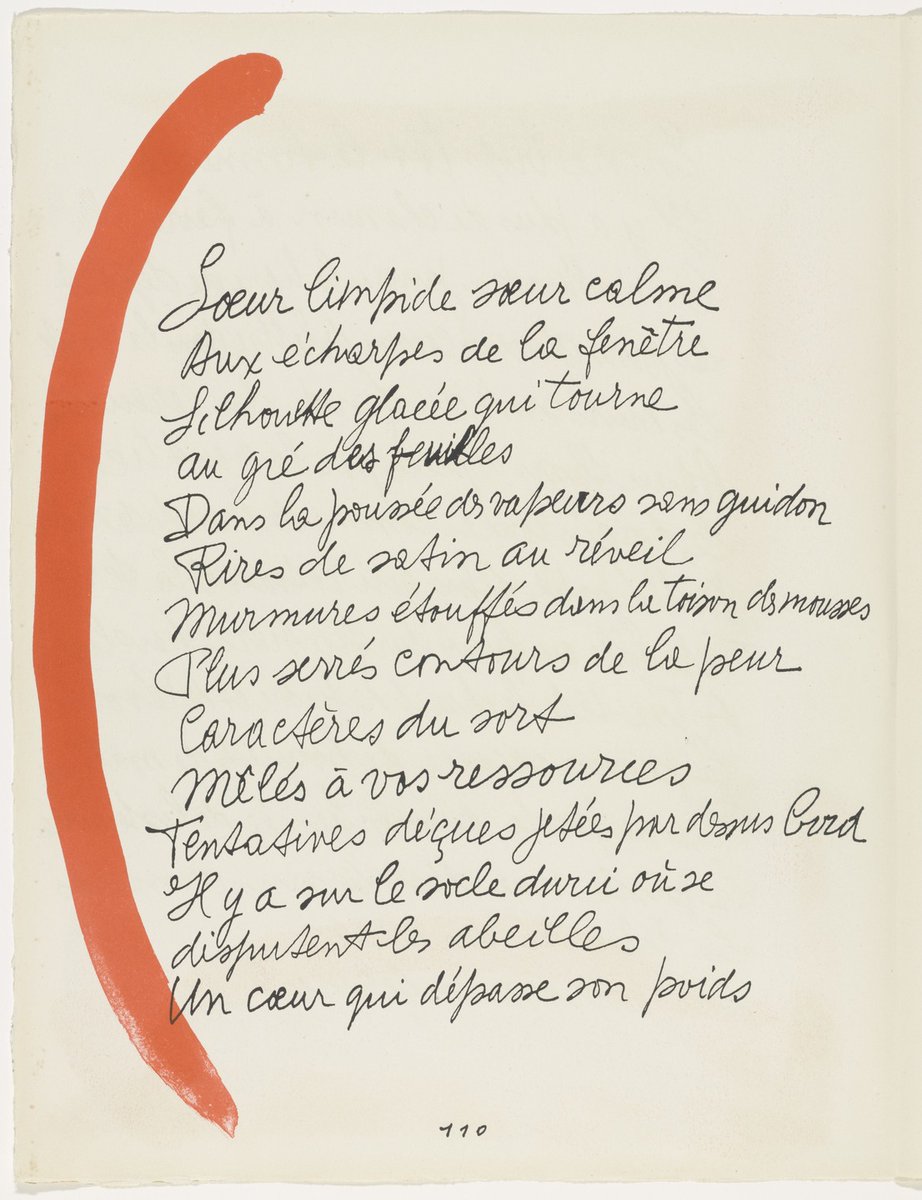 Sœur limpide sœur calme
Aux écharpes de la fenêtre
Silhouette glacée qui tourne
au gré des feuilles
Dans la poussée des vapeurs sans guidon
Rires de satin au réveil
Murmures étouffés dans la toison des mousses
Plus serrés contours de la peur
Caractères du sort
Mêlés à vos ressources
Tentatives déçues jetées par dessus bord
Il y a sur le socle durci où se
disputent les abeilles
Un cœur qui dépasse son poids
110